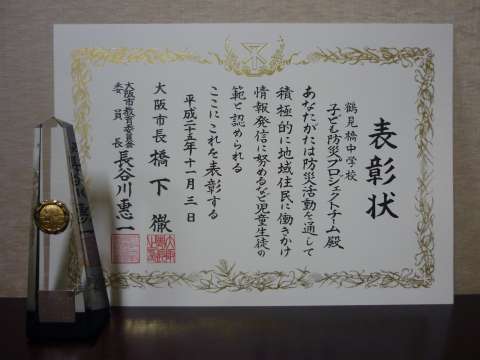 表彰状
鶴見橋中学校
子ども防災プロジェクトチーム殿
あなたがたは防災活動を通して
積極的に地域住民に働きかけ
情報発信に努めるなど児童生徒の
範と認められる
ここにこれを表彰する
平成二十五年十一月三日
大阪市長 橋下徹
大阪市教育委員会
委員長 長谷川惠一